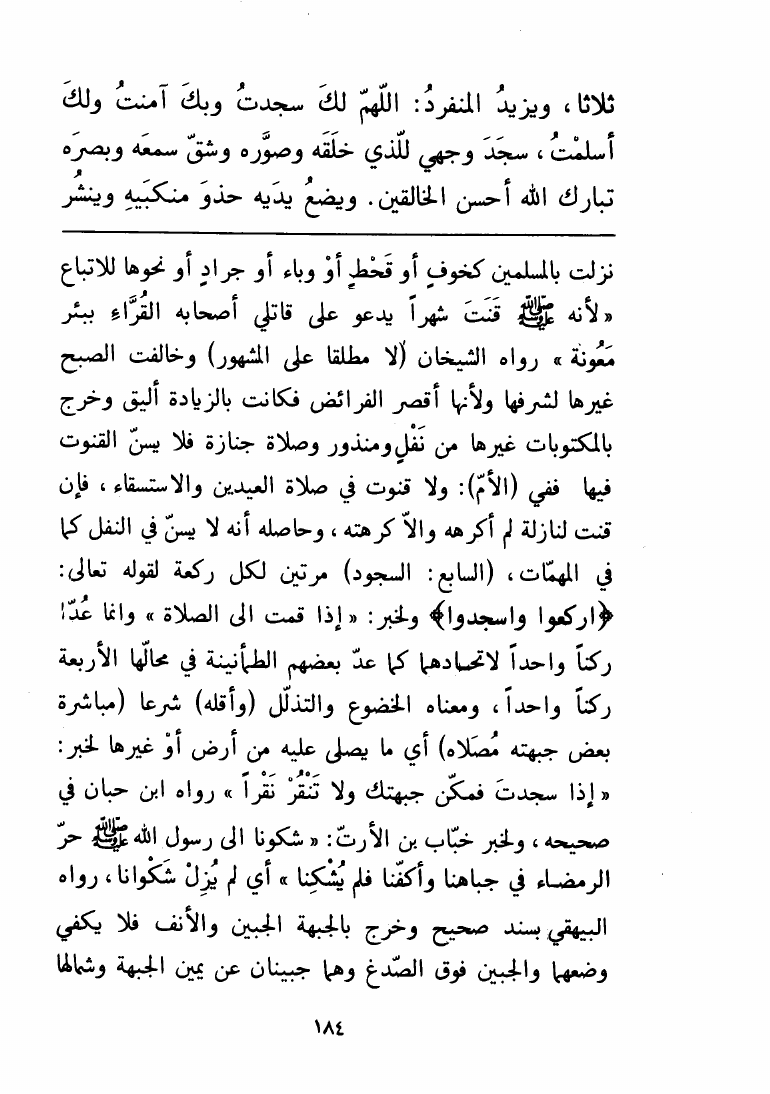 ثلاثا، ويزيدُ المنفردُ: اللّهمّ لكَ سجدتُ وبكَ آمنتُ ولكَ
أسلمْتُ، سجَدَ وجهي للّذي خلَقَه وصوَّره وشقّ سمعَه وبصرَه
تبارك الله أحسن الخالقين. ويضعُ يدَيه حذوَ منكبَيهِ وينشُر
نزلت بالمسلمين كخوفٍ أو قَحْطٍ أوْ وباء أو جرادٍ أو نحوها للاتباع
«لأنه ﷺ قَنَتَ شهراً يدعو على قاتلي أصحابه القُرَّاءِ ببئر
مَعُونة» رواه الشيخان (لا مطلقا على المشهور) وخالفت الصبح
غيرها لشرفها ولأنها أقصر الفرائض فكانت بالزيادة أليق وخرج
بالمكتوبات غيرها من نَفْلٍ ومنذور وصلاة جنازة فلا يسنّ القنوت
فيها ففي (الأمّ): ولا قنوت في صلاة العيدين والاستسقاء، فإن
قنت لنازلة لم أكرهه والاّ كرهته، وحاصله أنه لا يسنّ في النفل كما
في المهمّات، (السابع: السجود) مرتين لكل ركعة لقوله تعالى:
﴿اركعوا واسجدوا﴾ ولخبر: «إذا قمت الى الصلاة» وانما عُدّا
ركناً واحداً لاتحادهما كما عدّ بعضهم الطمأنينة في محالّها الأربعة
ركناً واحداً، ومعناه الخضوع والتذلّل (وأقله) شرعا (مباشرة
بعض جبهته مُصَلاه) أي ما يصلى عليه من أرض أوْ غيرها لخبر:
«إذا سجدتَ فمكّن جبهتك ولا تَنْقُرْ نَقْراً» رواه ابن حبان في
صحيحه، ولخبر خبّاب بن الأرتّ: «شكونا الى رسول الله ﷺ حرّ
الرمضاء في جباهنا وأكفّنا فلم يُشْكِنا» أي لم يُزِلْ شَكْوانا، رواه
البيهقي بسند صحيح وخرج بالجبهة الجبين والأنف فلا يكفي
وضعهما والجبين فوق الصّدغ وهما جبينان عن يمين الجبهة وشمالها
١٨٤